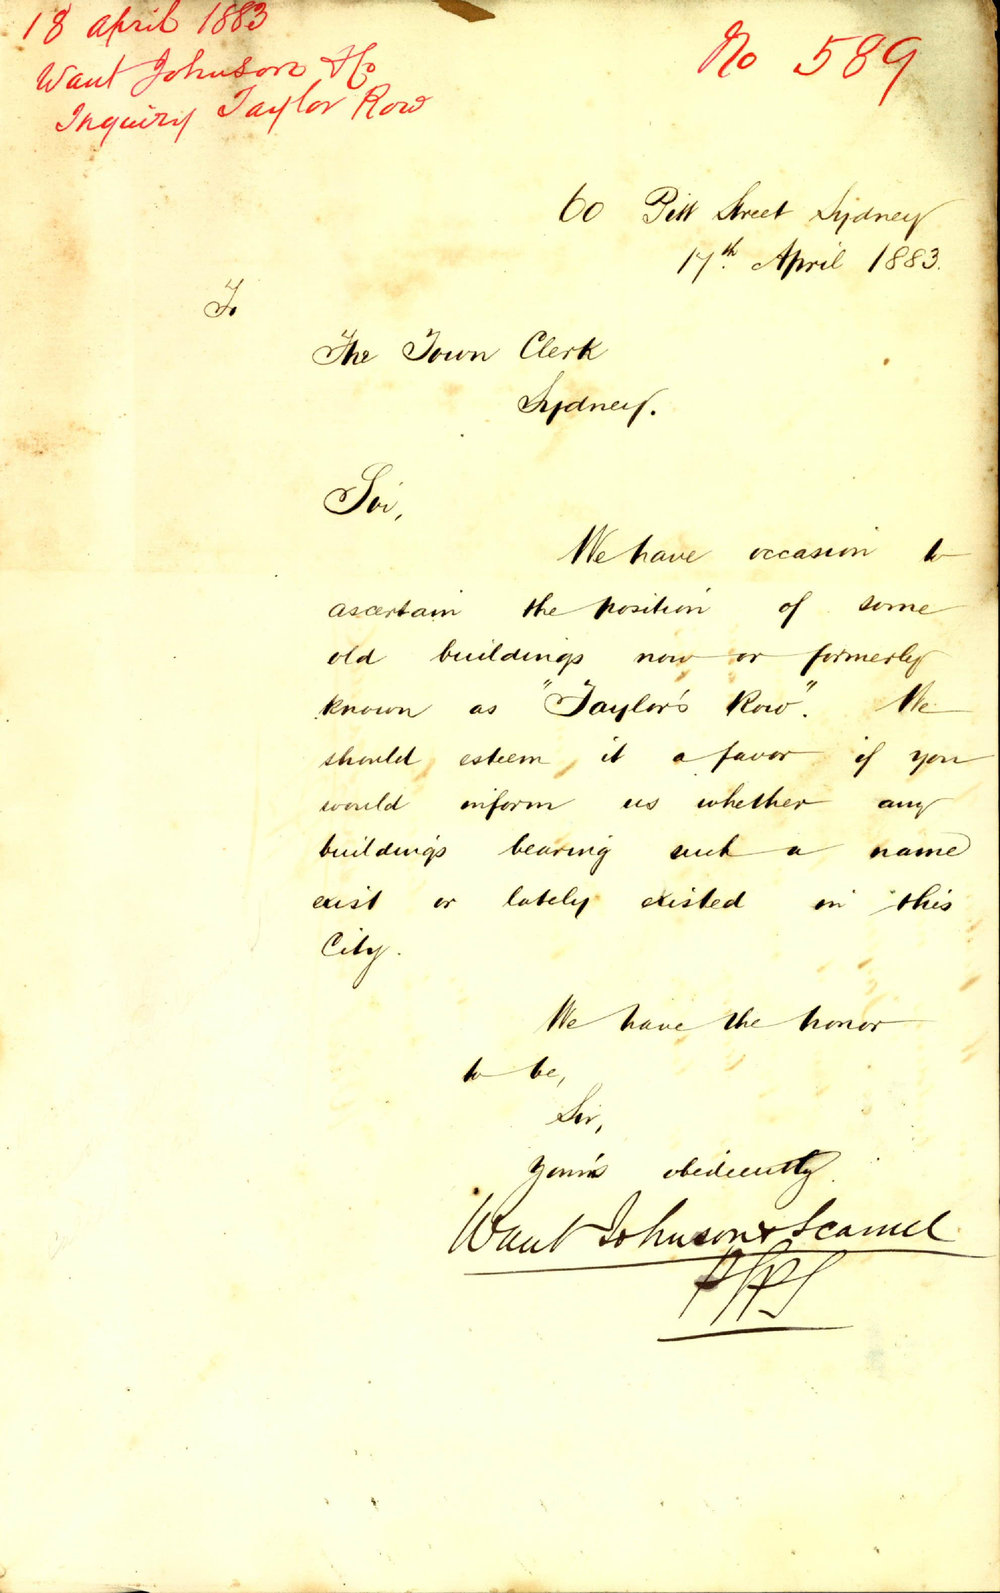 18 april 1883
Want Johnson & Co
Inquiry Taylor Row
No 589
60 Pitt Street Sydney
17th April 1883.
To
The Town Clerk
Sydney.
Sir,
We have occasion to
ascertain the position of some
old buildings now or formerly
known as "Taylor's Row". We
should esteem it a favor if you
would inform us whether any
buildings bearing such a name
exist or lately existed in this
City.
We have the honor
to be,
Sir,
Yours obediently.
Want Johnson & Scarvell